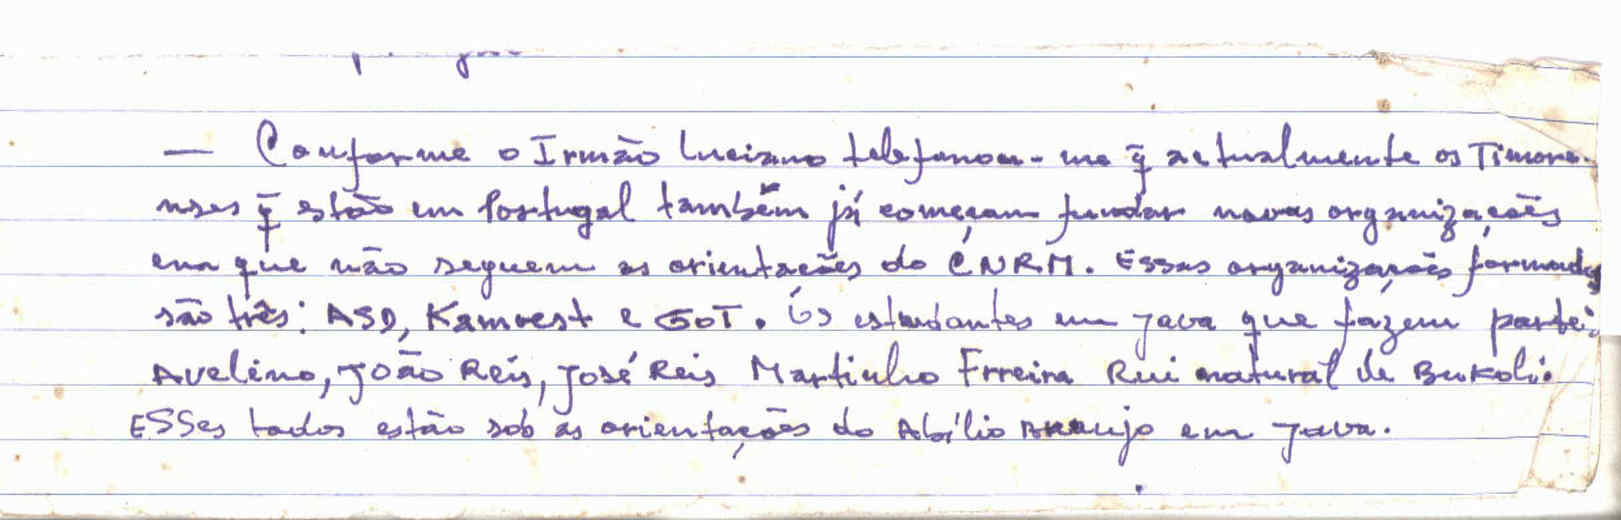 — Conforme o Irmão Luciano telefonou-me q̃ actualmente os Timore-
nses q̃ estão em Portugal também já começam fundar novas organizações
em que não seguem as orientações do CNRM. Essas organizações formadas
são três: ASD, Kamvest e GOT. Os estudantes em Java que fazem parte:
Avelino, João Reis, José Reis Martinho Frreira Rui natural de Bukoli.
Esses todos estão sob as orientações do Abílio Araujo em Java.